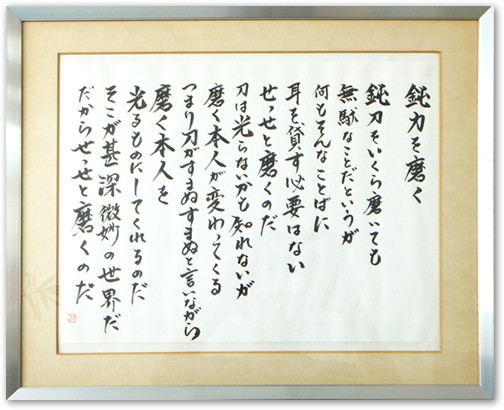 鈍刀を磨く
鈍刀をいくら磨いても
無駄なことだというが
何もそんなことばに
耳を貸す必要はない
せっせと磨くのだ
刀は光らないかも知れないが
磨く本人が変わってくる
つまり刀がすまぬすまぬと言いながら
磨く本人を
光るものにしてくれるのだ
そこが甚深微妙の世界だ
だからせっせと磨くのだ